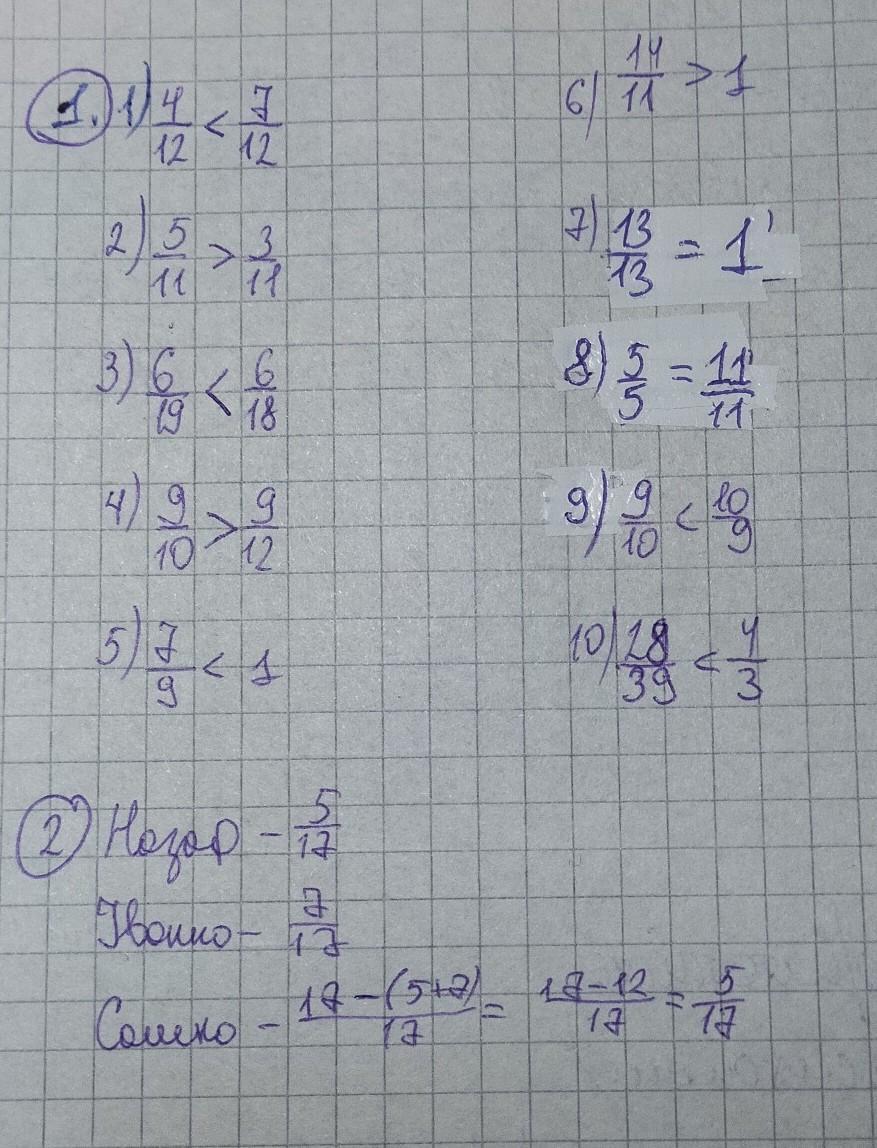 1. 1) 4/12 < 7/12
2) 5/11 > 3/11
3) 6/19 < 6/18
4) 9/10 > 9/12
5) 7/9 < 1
6) 14/11 > 1
7) 13/13 = 1
8) 5/5 = 11/11
9) 9/10 < 10/9
10) 28/39 < 4/3
2 Назар – 5/17
Іванко – 7/17
Сашко – 17–(5+7)/17 = 17–12/17 = 5/17